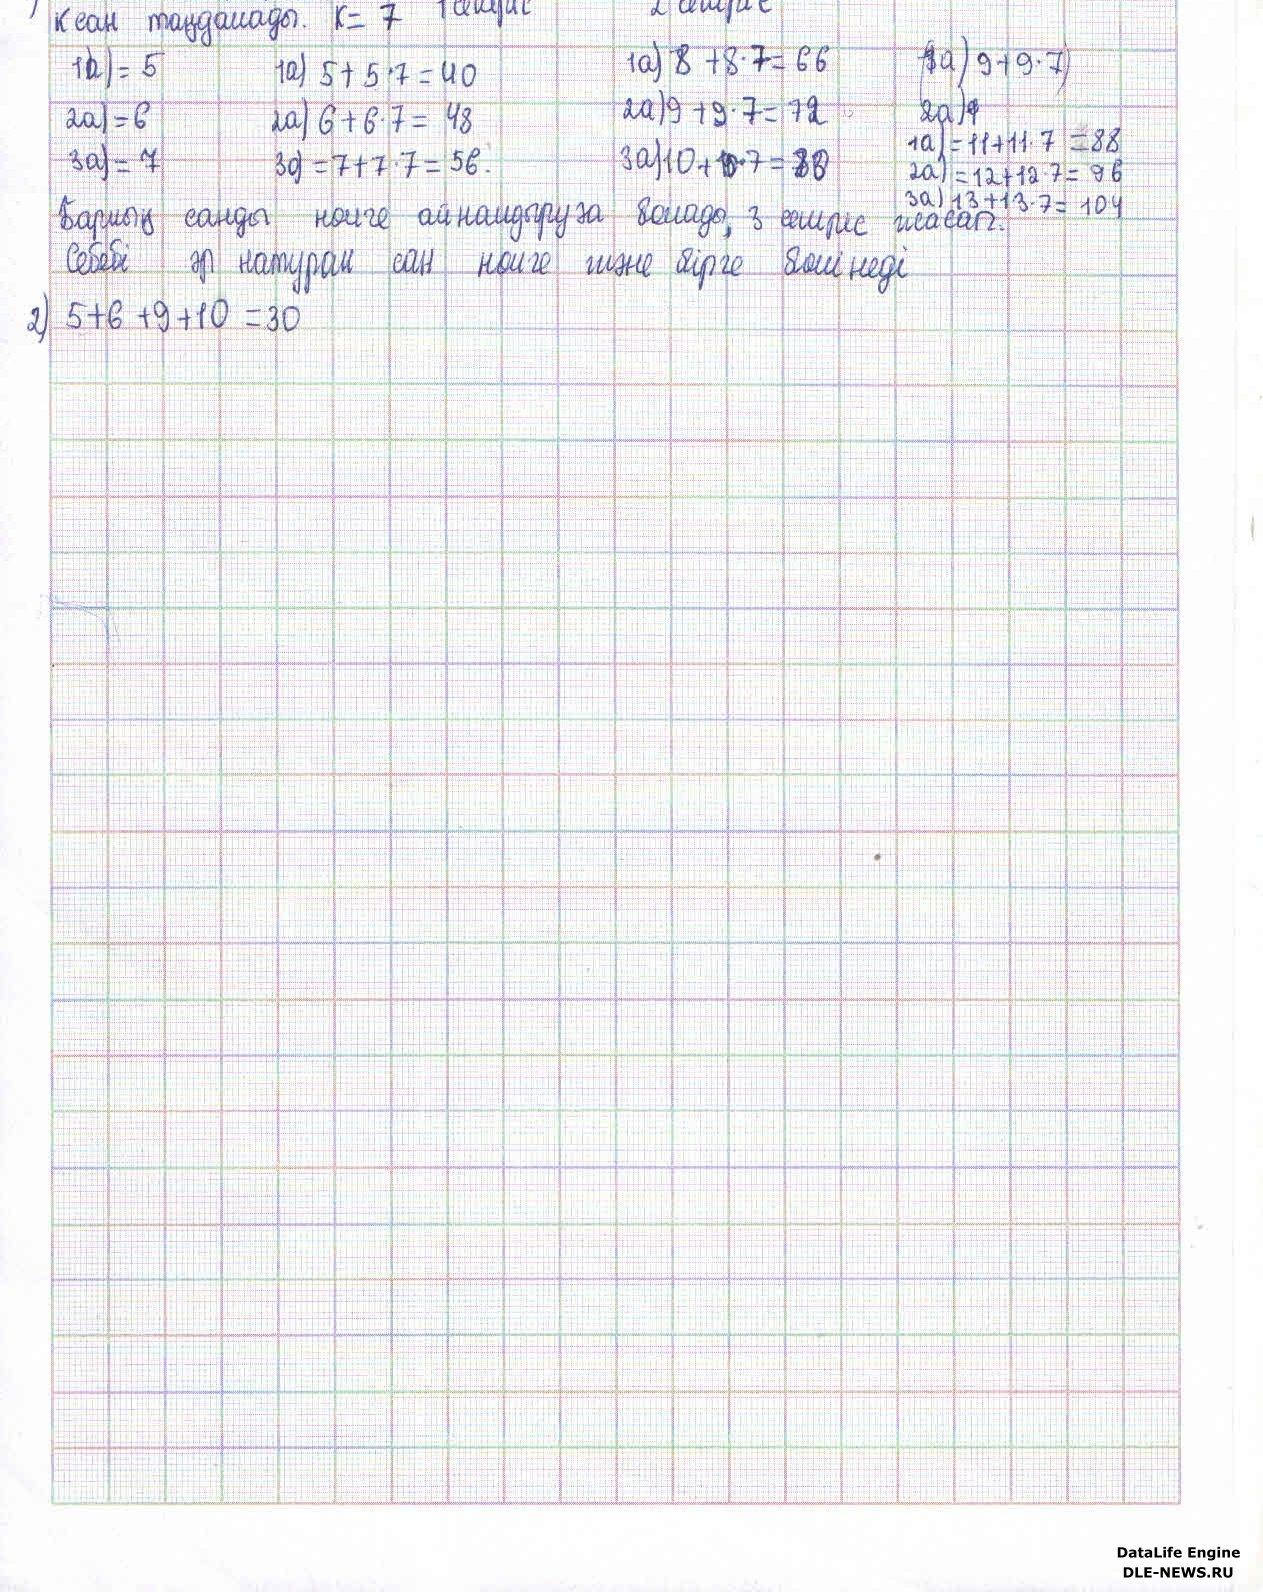 К сан таңдалады. K= 7 1 сәтріс 2 сәтріс
1а) = 5 1а) 5 + 5 · 7 = 40 1а) 8 + 8 · 7 = 66 1а) 9 + 9 · 7)
2а) = 6 2а) 6 + 6 · 7 = 48 2а) 9 + 9 · 7 = 72 2а)
3а) = 7 3а) = 7 + 7 · 7 = 56. 3а) 10 + 10 · 7 = 80
1а) = 11 + 11 · 7 = 88
2а) = 12 + 12 · 7 = 96
3а) 13 + 13 · 7 = 104
Барлық санды нөлге айналдыруға болады, 3 жасап.
Себебі әр натурал сан нөлге және бірге бөлінеді
2) 5 + 6 + 9 + 10 = 30
DataLife Engine
DLE-NEWS.RU